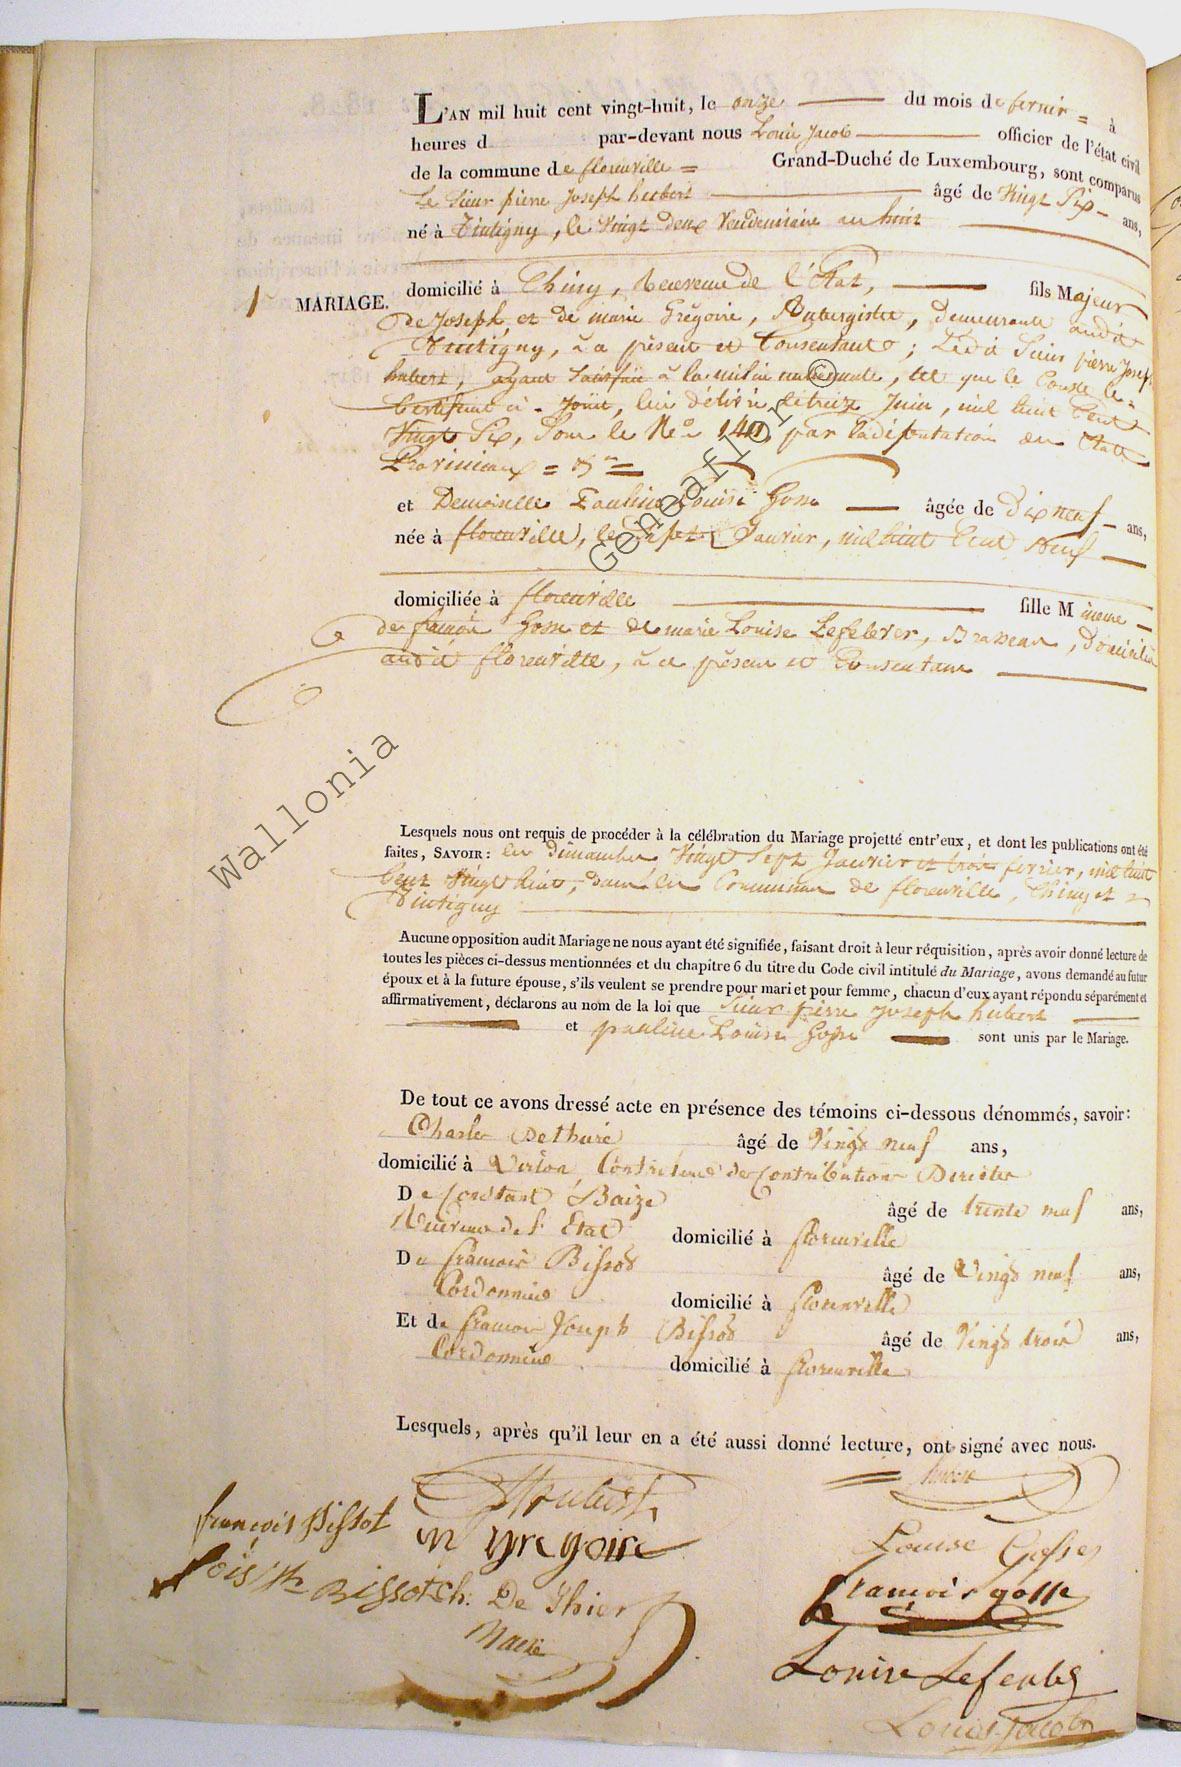 L'AN mil huit cent vingt-huit, le onze du mois de fevrier = à
heures d par-devant nous Louis Jacob officier de l'état civil
de la commune de florenville = Grand-Duché de Luxembourg, sont comparus
Le Sieur pierre Joseph hubert âgé de Vingt Six ans,
né à Tintigny, le Vingt deux Vendemiaire an huit
1 MARIAGE.
domicilié à Chiny, Receveur de l'Etat, fils Majeur
de Joseph et de marie Grégoire, Aubergiste, demeurants audit
Tintigny, à ce présent et Consentants ; Ledit Sieur pierre Joseph
hubert, ayant Satisfait à la milice nationale, tel que le Constate le
Certificat ci-Joint, lui délivré le treize Juin, mil huit Cent
Vingt Six, Sous le No. 140 par la députation des Etats
Provinciaux =
et Demoiselle Pauline Louise Gosse âgée de Dix neuf ans,
née à florenville, le Sept Janvier, mil huit Cent Neuf
domiciliée à florenville fille M ineure
de francois Gosse et de marie Louise Lefebver, Brasseur, domicilié
audit florenville, à ce présent et Consentant
Lesquels nous ont requis de procéder à la célébration du Mariage projetté entr'eux, et dont les publications ont été
faites, SAVOIR : les dimanches Vingt Sept Janvier et trois fevrier, mil huit
Cent Vingt huit, dans les Communes de florenville, Chiny et
Tintigny
Aucune opposition audit Mariage ne nous ayant été signifiée, faisant droit à leur réquisition, après avoir donné lecture de
toutes les pièces ci-dessus mentionnées et du chapitre 6 du titre du Code civil intitulé du Mariage, avons demandé au futur
époux et à la future épouse, s'ils veulent se prendre pour mari et pour femme, chacun d'eux ayant répondu séparément et
affirmativement, déclarons au nom de la loi que Sieur pierre Joseph hubert
et pauline Louise Gosse sont unis par le Mariage.
De tout ce avons dressé acte en présence des témoins ci-dessous dénommés, savoir :
Charles Dethier âgé de Vingt neuf ans,
domicilié à Virton, Controleur des Contributions Directes
De Constant Baize âgé de trente neuf ans,
Receveur de l'Etat domicilié à florenville
De francois Bissot âgé de Vingt neuf ans,
Cordonnier domicilié à florenville
Et de francois Joseph Bissot âgé de Vingt trois ans,
Cordonnier domicilié à florenville
Lesquels, après qu'il leur en a été aussi donné lecture, ont signé avec nous.
hubert
françois Bissot
m gregoire
Louise Gosse
Bissot ch. De Thier
françois gosse
Louise Lefeube
Louis Jacob
Wallonia
Geneaflor ©